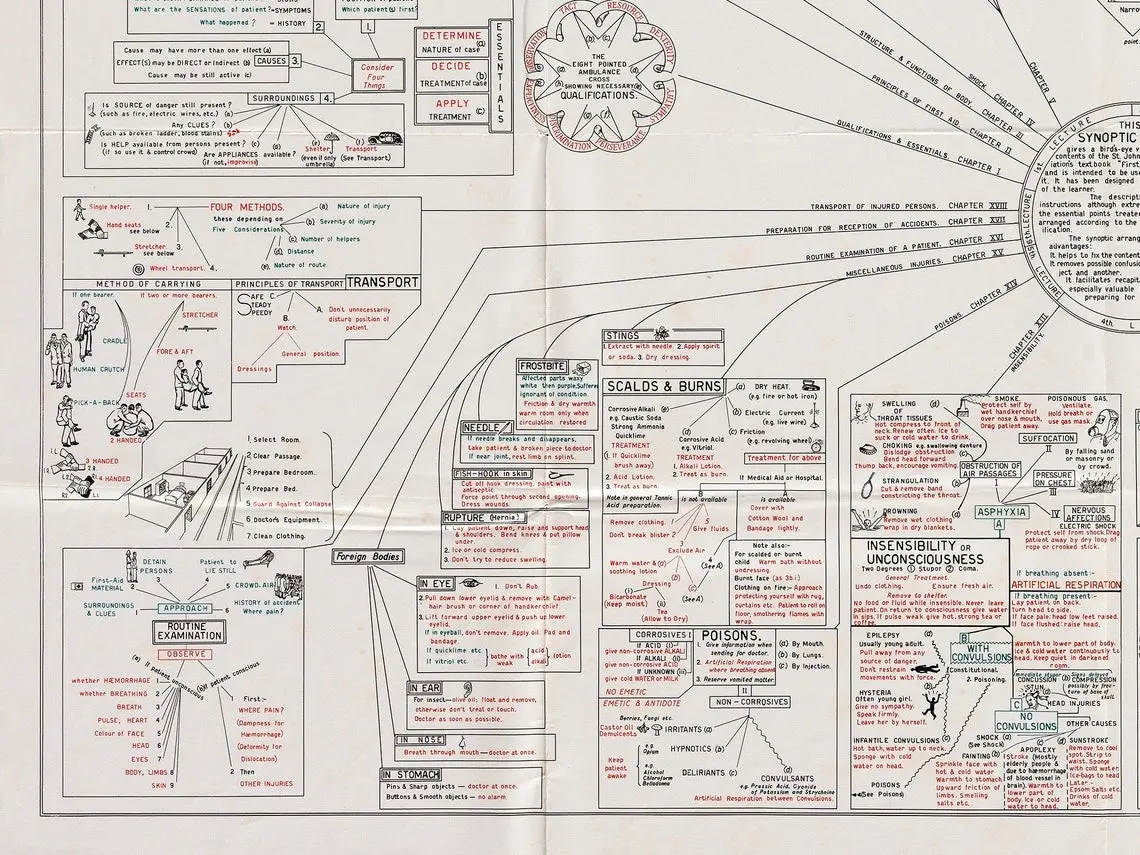 What are the SENSATIONS of patient?=SYMPTOMS
What happened? = HISTORY 2.
Which patient(s) first?
1.
Cause may have more than one effect (a)
EFFECT(S) may be DIRECT or Indirect (b) CAUSES 3.
Cause may be still active (c)
Consider
Four
Things
DETERMINE
(a)
NATURE of case
DECIDE
(b)
TREATMENT of case
APPLY
(c)
TREATMENT
ESSENTIALS
SURROUNDINGS 4.
Is SOURCE of danger still present?
(such as fire, electric wires, etc.) (a)
Any CLUES? (b)
(such as broken ladder, blood stains)
Is HELP available from persons present? (c)
(if so use it & control crowd)
(d)
Are APPLIANCES available?
(if not, improvise)
(e)
Shelter
(even if only
umbrella)
(f)
Transport
(See Transport)
FACT
RESOURCE
DEXTERITY
SYMPATHY
PERSEVERANCE
DISCRIMINATION
EXPLICITNESS
OBSERVATION
THE
EIGHT POINTED
AMBULANCE
CROSS
SHOWING NECESSARY
QUALIFICATIONS.
STRUCTURE & FUNCTIONS OF BODY CHAPTER III
SHOCK CHAPTER IV
CHAPTER V
PRINCIPLES OF FIRST AID CHAPTER II
QUALIFICATIONS & ESSENTIALS CHAPTER I
TRANSPORT OF INJURED PERSONS. CHAPTER XVIII
PREPARATION FOR RECEPTION OF ACCIDENTS. CHAPTER XVII
ROUTINE EXAMINATION OF A PATIENT, CHAPTER XVI
MISCELLANEOUS INJURIES. CHAPTER XV
POISONS. CHAPTER XIV
CHAPTER XIII
INSENSIBILITY.
Narro
point.
1st LECTURE
6th LECTURE
5th LECTURE
4th L
THIS
SYNOPTIC
gives a bird's-eye v
contents of the St. John
iation's textbook "First
and is intended to be use
it. It has been designed
of the learner.
The descripti
instructions although extre
the essential points treate
arranged according to the
ification.
The synoptic arrang
advantages:
It helps to fix the content
It removes possible confusio
ject and another.
It facilitates recapit
especially valuable
preparing for
Single helper. 1.
Hand seats
see below 2.
Stretcher. 3.
see below
Wheel transport. 4.
FOUR METHODS.
these depending on
Five Considerations
(a) Nature of injury
(b) Severity of injury
(c) Number of helpers
(d) Distance
(e) Nature of route.
METHOD OF CARRYING
PRINCIPLES OF TRANSPORT
TRANSPORT
If one bearer.
If two or more bearers.
STRETCHER
CRADLE
HUMAN CRUTCH
FORE & AFT
PICK-A-BACK
SEATS
2 HANDED
3 HANDED
4 HANDED
SAFE C.
STEADY
SPEEDY
A. Don't unnecessarily
disturb position of
patient.
B.
Watch.
General position.
Dressings
1. Select Room.
2. Clear Passage.
3. Prepare Bedroom.
4. Prepare Bed.
5. Guard Against Collapse
6. Doctor's Equipment.
7. Clean Clothing.
DETAIN
PERSONS 3
Patient to
LIE STILL
4
5 CROWD. AIR
First-Aid
MATERIAL 2
SURROUNDINGS
& CLUES 1
APPROACH
6
HISTORY of accident
Where pain?
ROUTINE
EXAMINATION
OBSERVE
(a) If patient unconscious
(b) If patient conscious
whether HÆMORRHAGE 1
whether BREATHING 2
BREATH 3
PULSE, HEART 4
Colour of FACE 5
HEAD 6
EYES 7
BODY, LIMBS 8
SKIN 9
First:-
WHERE PAIN?
(Dampness for
Hæmorrhage)
(Deformity for
Dislocation)
2 Then
OTHER INJURIES
Foreign Bodies
STINGS
1. Extract with needle. 2. Apply spirit
or soda. 3. Dry dressing.
FROSTBITE
Affected parts waxy
white then purple, Sufferer
ignorant of condition.
Friction & dry warmth
warm room only when
circulation restored
NEEDLE
If needle breaks and disappears,
take patient & broken piece to doctor.
If near joint, rest limb on splint.
FISH-HOOK in skin
Cut off hook dressing, paint with
antiseptic
Force point through second opening.
Dress wounds.
RUPTURE (Hernia)
1. Lay patient down, raise and support head
& shoulders. Bend knees & put pillow
under.
2. Ice or cold compress.
3. Don't try to reduce swelling.
IN EYE
1. Don't Rub.
2. Pull down lower eyelid & remove with Camel-
hair brush or corner of handkerchief.
3. Lift forward upper eyelid & push up lower
eyelid.
If in eyeball, don't remove. Apply oil. Pad and
bandage.
If quicklime etc
If vitriol etc.
bathe with
weak
acid
alkali
lotion
IN EAR
For insect—olive oil; float and remove,
otherwise don't treat or touch.
Doctor as soon as possible.
IN NOSE
Breath through mouth—doctor at once.
IN STOMACH
Pins & Sharp objects — doctor at once.
Buttons & Smooth objects — no alarm.
SCALDS & BURNS
(a) DRY HEAT.
(e.g. fire or hot iron)
(b) Electric Current
(e.g. live wire)
(c) Friction
(e.g. revolving wheel)
Treatment for above
Corrosive Alkali (e)
e.g. Caustic Soda
Strong Ammonia
Quicklime
TREATMENT
(1. If Quicklime
brush away)
2. Acid Lotion.
3. Treat as burn
(d)
Corrosive Acid
e.g. Vitriol.
TREATMENT
1. Alkali Lotion.
2. Treat as burn.
Note in general Tannic
Acid preparation.
If Medical Aid or Hospital.
B
is not available
A
is available
Cover with
Cotton Wool and
Bandage lightly.
Remove clothing. 1
Don't break blister 2
5
Give fluids
Exclude Air
3
Warm water & (a)
soothing lotion
(b)
Dressing
4
(See A)
(i)
Bicarbonate
(Keep moist)
(ii)
Tea
(Allow to Dry)
(c)
(See A)
Note also:-
For scalded or burnt
child Warm bath without
undressing.
Burnt face (as 3b i.)
Clothing on fire:- Approach
protecting yourself with rug,
curtains etc. Patient to roll on
floor, smothering flames with
wrap.
CORROSIVES I
If ACID (i)
give non-corrosive ALKALI
If ALKALI (ii)
give non-corrosive ACID
If UNKNOWN (iii)
give cold WATER or MILK
NO EMETIC
EMETIC & ANTIDOTE
POISONS.
1. Give information when
sending for doctor.
2. Artificial Respiration
where breathing absent
3. Reserve vomited matter.
(a) By Mouth.
(b) By Lungs.
(c) By Injection.
II
NON-CORROSIVES
Berries, Fungi etc.
Castor Oil
Demulcents
IRRITANTS (a)
e.g.
Opium
HYPNOTICS (b)
Keep
patient
awake
e.g.
Alcohol
Chloroform
Belladonna
DELIRIANTS (c)
(d)
CONVULSANTS
e.g. Prussic Acid, Cyanide
of Potassium and Strychnine
Artificial Respiration between Convulsions.
SWELLING
OF
THROAT TISSUES
Hot compress to front of
neck. Renew often. Ice to
suck or cold water to drink.
CHOKING e.g. swallowing denture
Dislodge obstruction
Bend head forward
Thump back, encourage vomiting.
STRANGULATION
Cut & remove band
constricting the throat.
DROWNING
Remove wet clothing
wrap in dry blankets.
SMOKE.
Protect self by
wet handkerchief
over nose & mouth.
Drag patient away.
POISONOUS GAS.
Ventilate.
Hold breath or
use gas mask.
SUFFOCATION
By falling sand
or masonry or
by crowd.
OBSTRUCTION OF
AIR PASSAGES
PRESSURE
ON CHEST
I
II
III
IV
ASPHYXIA
A
NERVOUS
AFFECTIONS
ELECTRIC SHOCK
Protect self from shock. Drag
patient away by dry loop of
rope or crooked stick.
INSENSIBILITY OR
UNCONSCIOUSNESS
Two Degrees (1) Stupor (2) Coma.
General Treatment.
Undo clothing. Ensure fresh air.
Remove to shelter.
No food or fluid while insensible. Never leave
patient. On return to consciousness give water
in sips. If pulse weak give hot, strong tea or
coffee.
If breathing absent:-
ARTIFICIAL RESPIRATION
If breathing present:-
Lay patient on back.
Turn head to side.
If face pale: head low feet raised.
If face flushed: raise head.
EPILEPSY
Usually young adult.
Pull away from any
source of danger.
Don't restrain
movements with force.
(d)
B
WITH
CONVULSIONS
1. Constitutional.
2. Poisoning.
HYSTERIA
Often young girl.
Give no sympathy.
Speak firmly.
Leave her by herself.
(b)
INFANTILE CONVULSIONS (c)
Hot bath, water up to neck.
Sponge with cold
water on head.
POISONS
(See Poisons)
Warmth to lower part of body.
Ice & cold water continuously to
head, Keep quiet in darkened
room.
CONCUSSION
STUN
(b) COMPRESSION
possibly by frac-
ture of base of
skull.
HEAD INJURIES
C
NO
CONVULSIONS
OTHER CAUSES
SHOCK (d)
(See Shock)
FAINTING (b)
Sprinkle face with
hot & cold water
Warmth to stomach
Upward friction of
limbs. Smelling
salts etc.
(c)
APOPLEXY
Stroke (Mostly
elderly people &
due to hæmorrhage
of blood vessel in
brain). Warmth to
lower part of
body. Ice or cold
water to head.
(d)
SUNSTROKE
Remove to cool
spot. Strip to
waist. Sponge
with cold water.
Ice-bags to head
Later:-
Epsom Salts etc.
Drinks of cold
water.